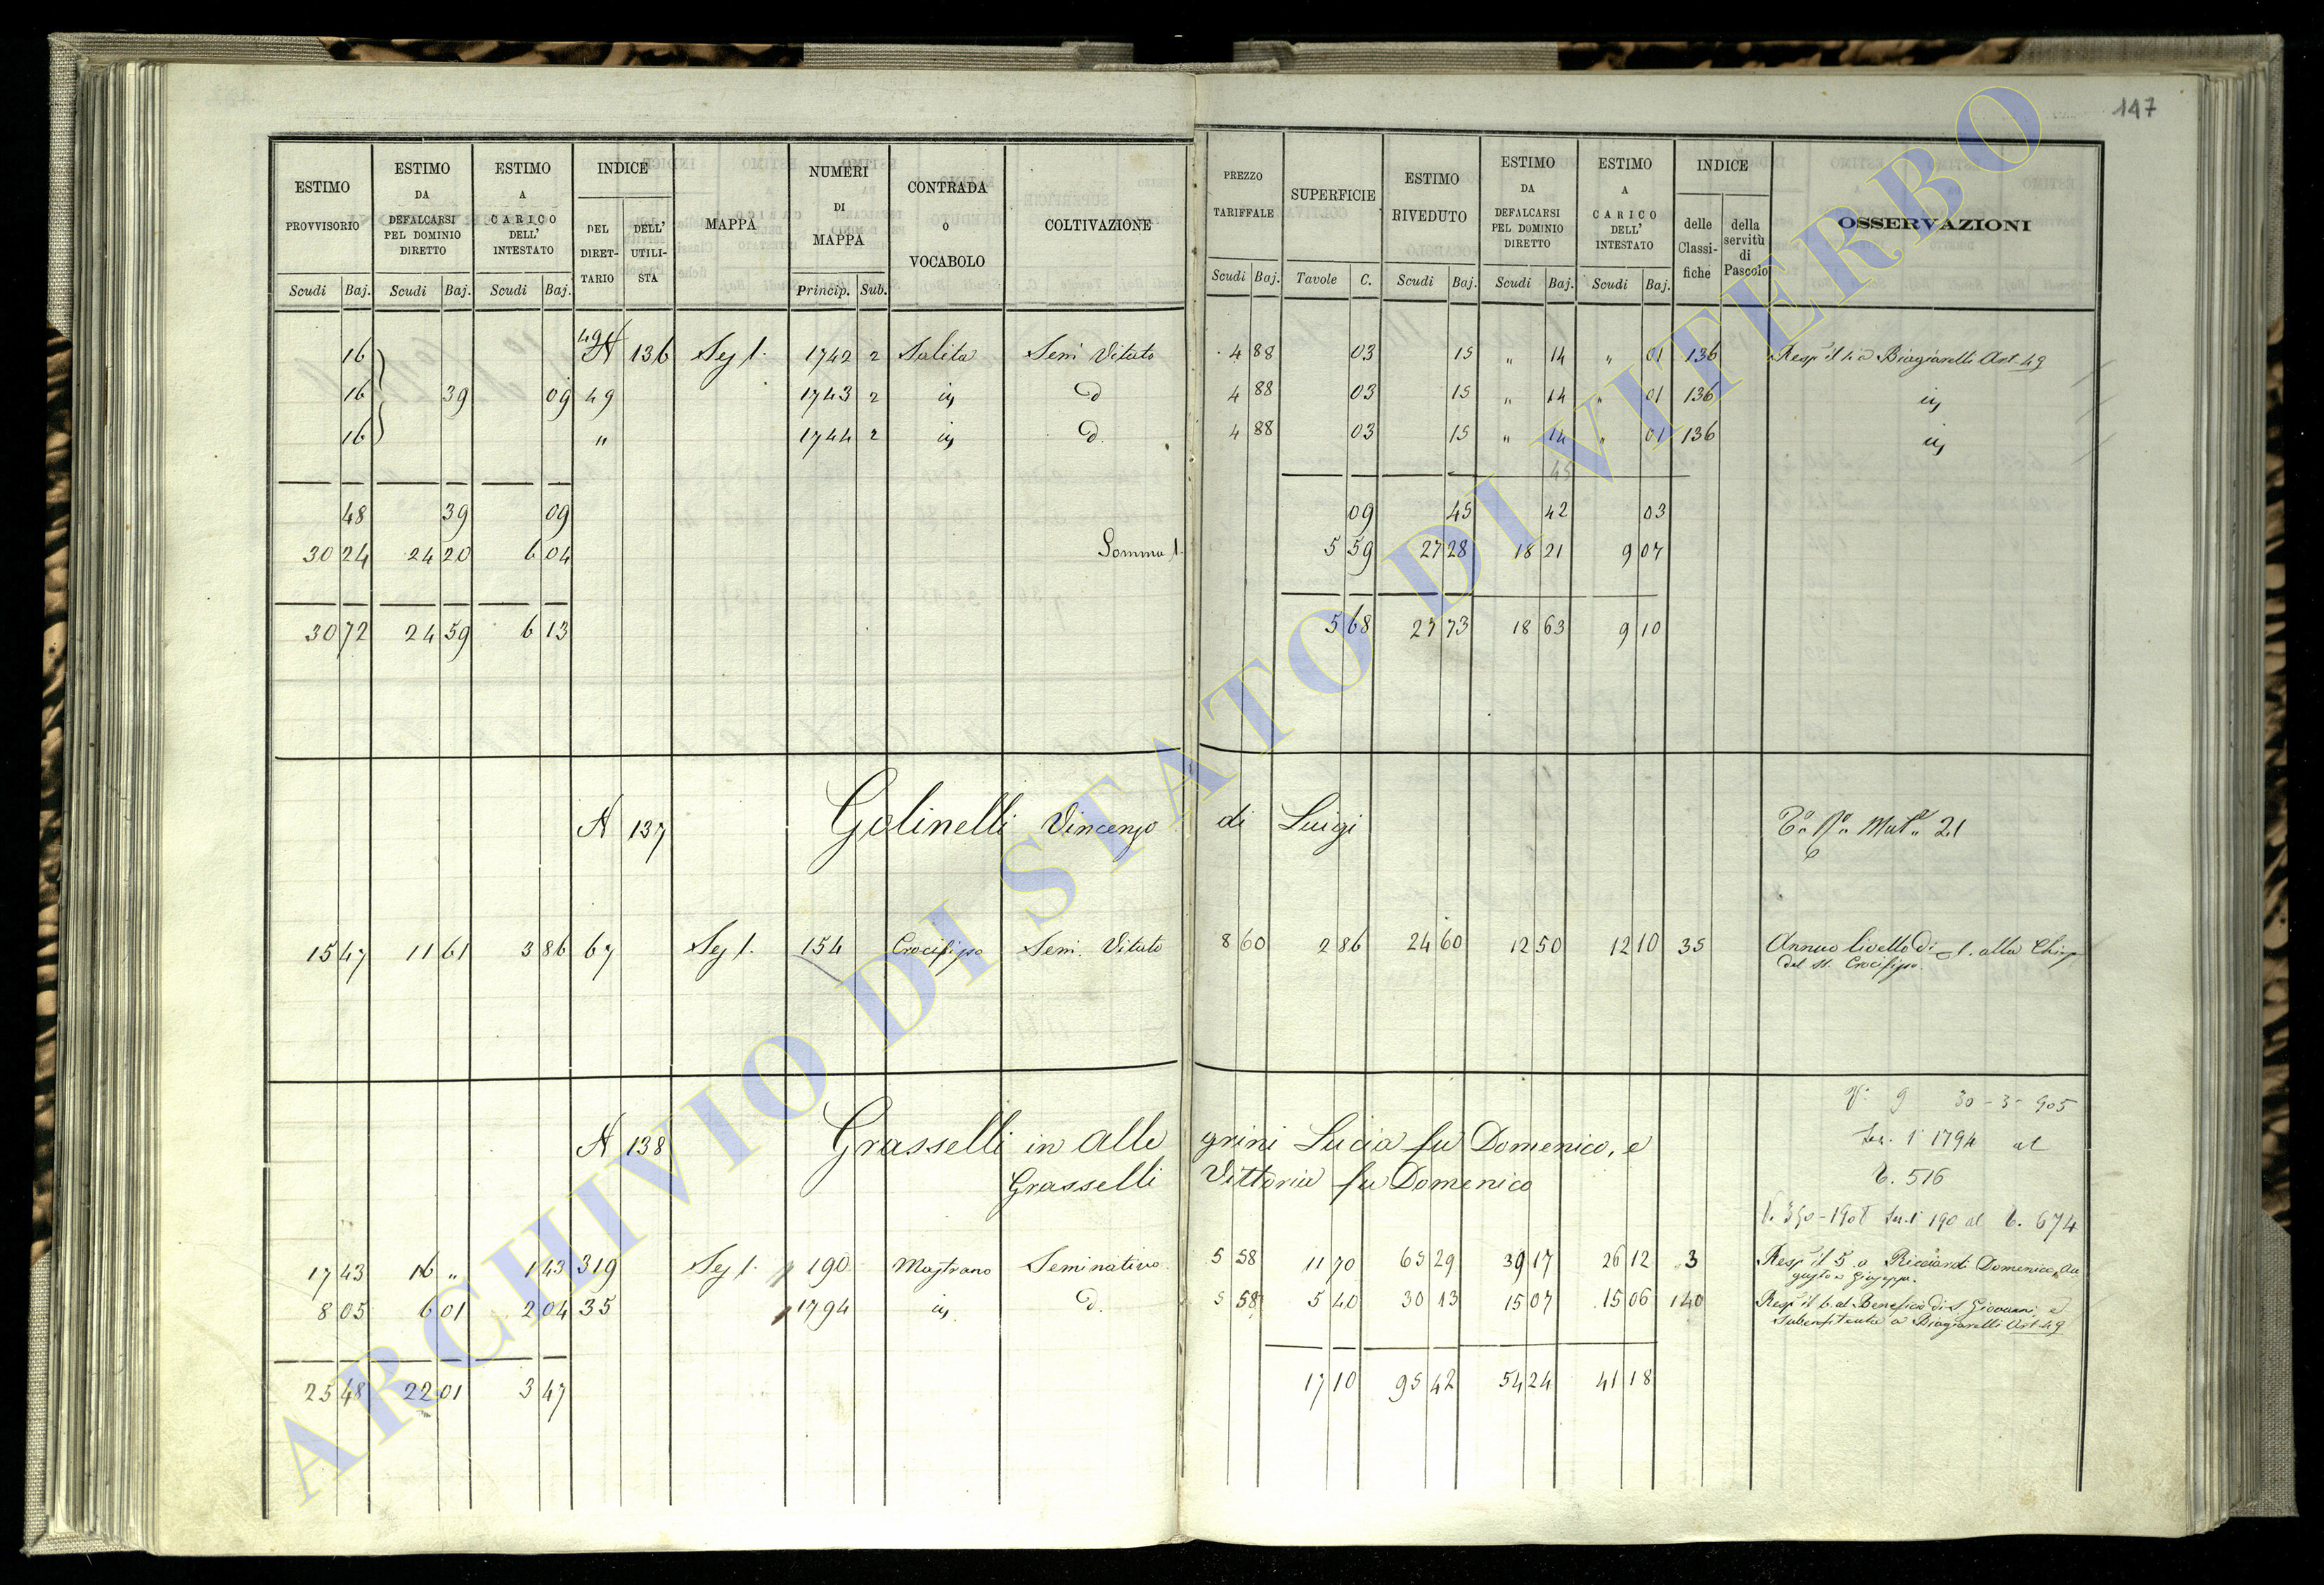 147
ESTIMO PROVVISORIO Scudi Baj. ESTIMO DA DEFALCARSI PEL DOMINIO DIRETTO Scudi Baj. ESTIMO A CARICO DELL' INTESTATO Scudi Baj. INDICE DEL DIRET-TARIO DELL' UTILI-STA MAPPA NUMERI DI MAPPA Princip. Sub. CONTRADA O VOCABOLO COLTIVAZIONE PREZZO TARIFFALE Scudi Baj. SUPERFICIE Tavole C. ESTIMO RIVEDUTO Scudi Baj. ESTIMO DA DEFALCARSI PEL DOMINIO DIRETTO Scudi Baj. ESTIMO A CARICO DELL' INTESTATO Scudi Baj. INDICE delle Classi-fiche della servitù di Pascolo OSSERVAZIONI
16 49 N 136 Sez 1. 1742 2 Salita Semi Vitato 4 88 03 15 " 14 " 01 136 Risp il 5 a Biagiarelli Art. 49
16 39 09 49 1743 2 id D 4 88 03 15 " 14 " 01 136 id
16 " 1744 2 id D. 4 88 03 15 " 14 " 01 136 id
45
48 39 09 09 45 42 03
30 24 24 20 6 04 Somma 1. 5 59 27 28 18 21 9 07
30 72 24 59 6 13 5 68 27 73 18 63 9 10
N 137 Golinelli Vincenzo di Luigi 21
15 47 11 61 3 86 67 Sez 1. 154 Crocifisso Semi. Vitato 8 60 2 86 24 60 12 50 12 10 35 Annuo livello di 1. alla Chiesa
del SS. Crocifisso.
V: 9 30-3-905
Sez. 1 1794 al
6. 516
N 138 Grasselli in Allegrini Lucia fu Domenico, e
Grasselli Vittoria fu Domenico
V. 390-1908 Sez. 1 190 al 6. 674
17 43 16 " 1 43 319 Sez 1. 190 Mastrano Seminativo 5 58 11 70 65 29 39 17 26 12 3 Risp il 5 a Ricciardi Domenico, Au
gusto e Giuseppe.
8 05 6 01 2 04 35 1794 id D. 5 58 5 40 30 13 15 07 15 06 140 Risp il 6. al Beneficio di S. Giovanni e
Subenfiteuta a Biagiarelli Art. 49
25 48 22 01 3 47 17 10 95 42 54 24 41 18
ARCHIVIO DI STATO DI VITERBO